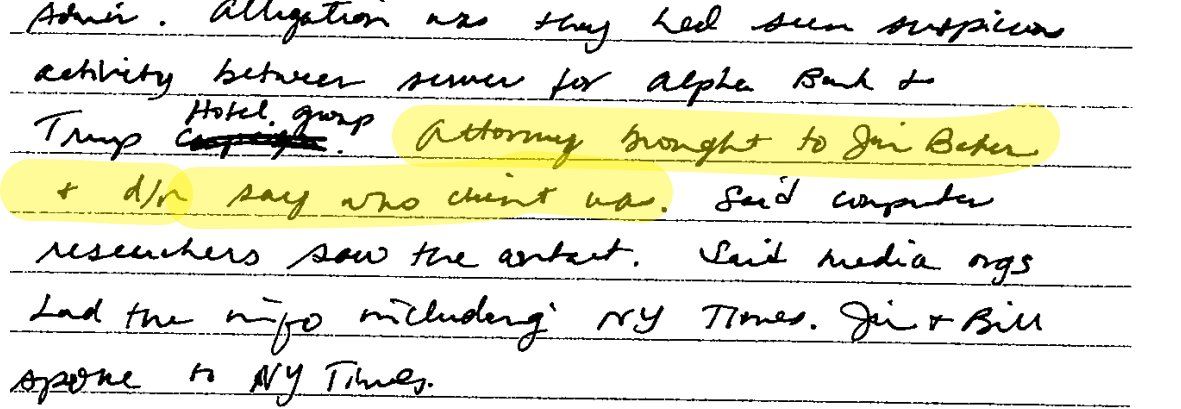 Admin. Alligation was they had seen suspicious
activity between server for Alpha Bank +
Hotel group
Trump .
Attorney brought to Jim Baker
+ d/n say who client was. Said computer
researchers saw the contact. Said media orgs
had the info including NY Times. Jim + Bill
spoke to NY Times.